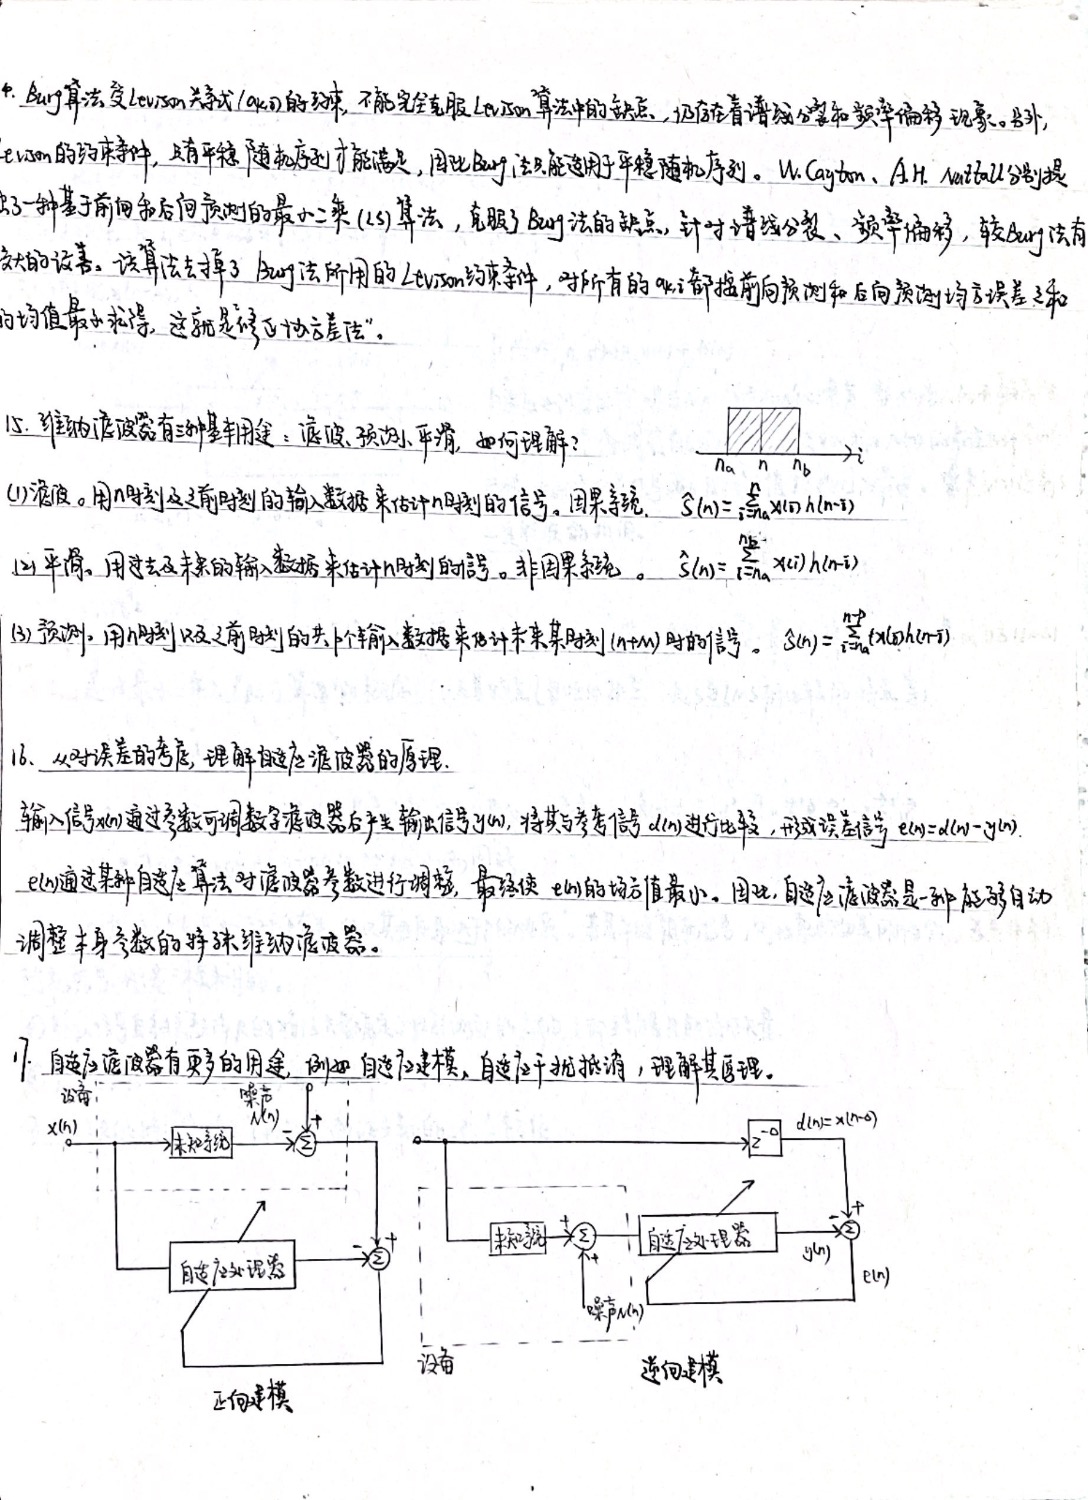 4. Burg算法受Levison关系式(ak,i)的约束,不能完全克服Levison算法中的缺点,仍存在着谱线分裂和频率偏移现象。另外,
Levison的约束条件,只有平稳随机序列才能满足,因此Burg法只能适用于平稳随机序列。W. Cayton、A.H. Nuttall分别提
出了一种基于前向和后向预测的最小二乘(LS)算法,克服了Burg法的缺点,针对谱线分裂、频率偏移,较Burg法有
较大的改善。该算法去掉了Burg法所用的Levison约束条件,对所有的ak,i都按前向预测和后向预测均方误差之和
的均值最小求得,这就是"修正协方差法"。
15. 维纳滤波器有三种基本用途:滤波、预测、平滑,如何理解?
na n nb i
(1)滤波。用n时刻及之前时刻的输入数据来估计n时刻的信号。因果系统. ŝ(n)=∑_{i=na}^{n} x(i)h(n-i)
(2)平滑。用过去及未来的输入数据来估计n时刻的信号。非因果系统。 ŝ(n)=∑_{i=na}^{nb} x(i)h(n-i)
(3)预测。用n时刻以及之前时刻的共P个输入数据来估计未来某时刻(n+M)时的信号。 ŝ(n)=∑_{i=na}^{n-P} x(i)h(n-i)
16. 从对误差的考虑,理解自适应滤波器的原理.
输入信号x(n)通过参数可调数字滤波器后产生输出信号y(n),将其与参考信号d(n)进行比较,形成误差信号e(n)=d(n)-y(n).
e(n)通过某种自适应算法对滤波器参数进行调整,最终使e(n)的均方值最小。因此,自适应滤波器是一种能够自动
调整本身参数的特殊维纳滤波器。
17. 自适应滤波器有更多的用途,例如自适应建模、自适应干扰抵消,理解其原理。
设备 噪声 N(n)
x(n) 未知系统 - + Σ
自适应处理器 - + Σ
正向建模
z^-Δ d(n)=x(n-Δ)
未知系统 + Σ + 自适应处理器 - + Σ
y(n) e(n)
噪声N(n)
设备
逆向建模